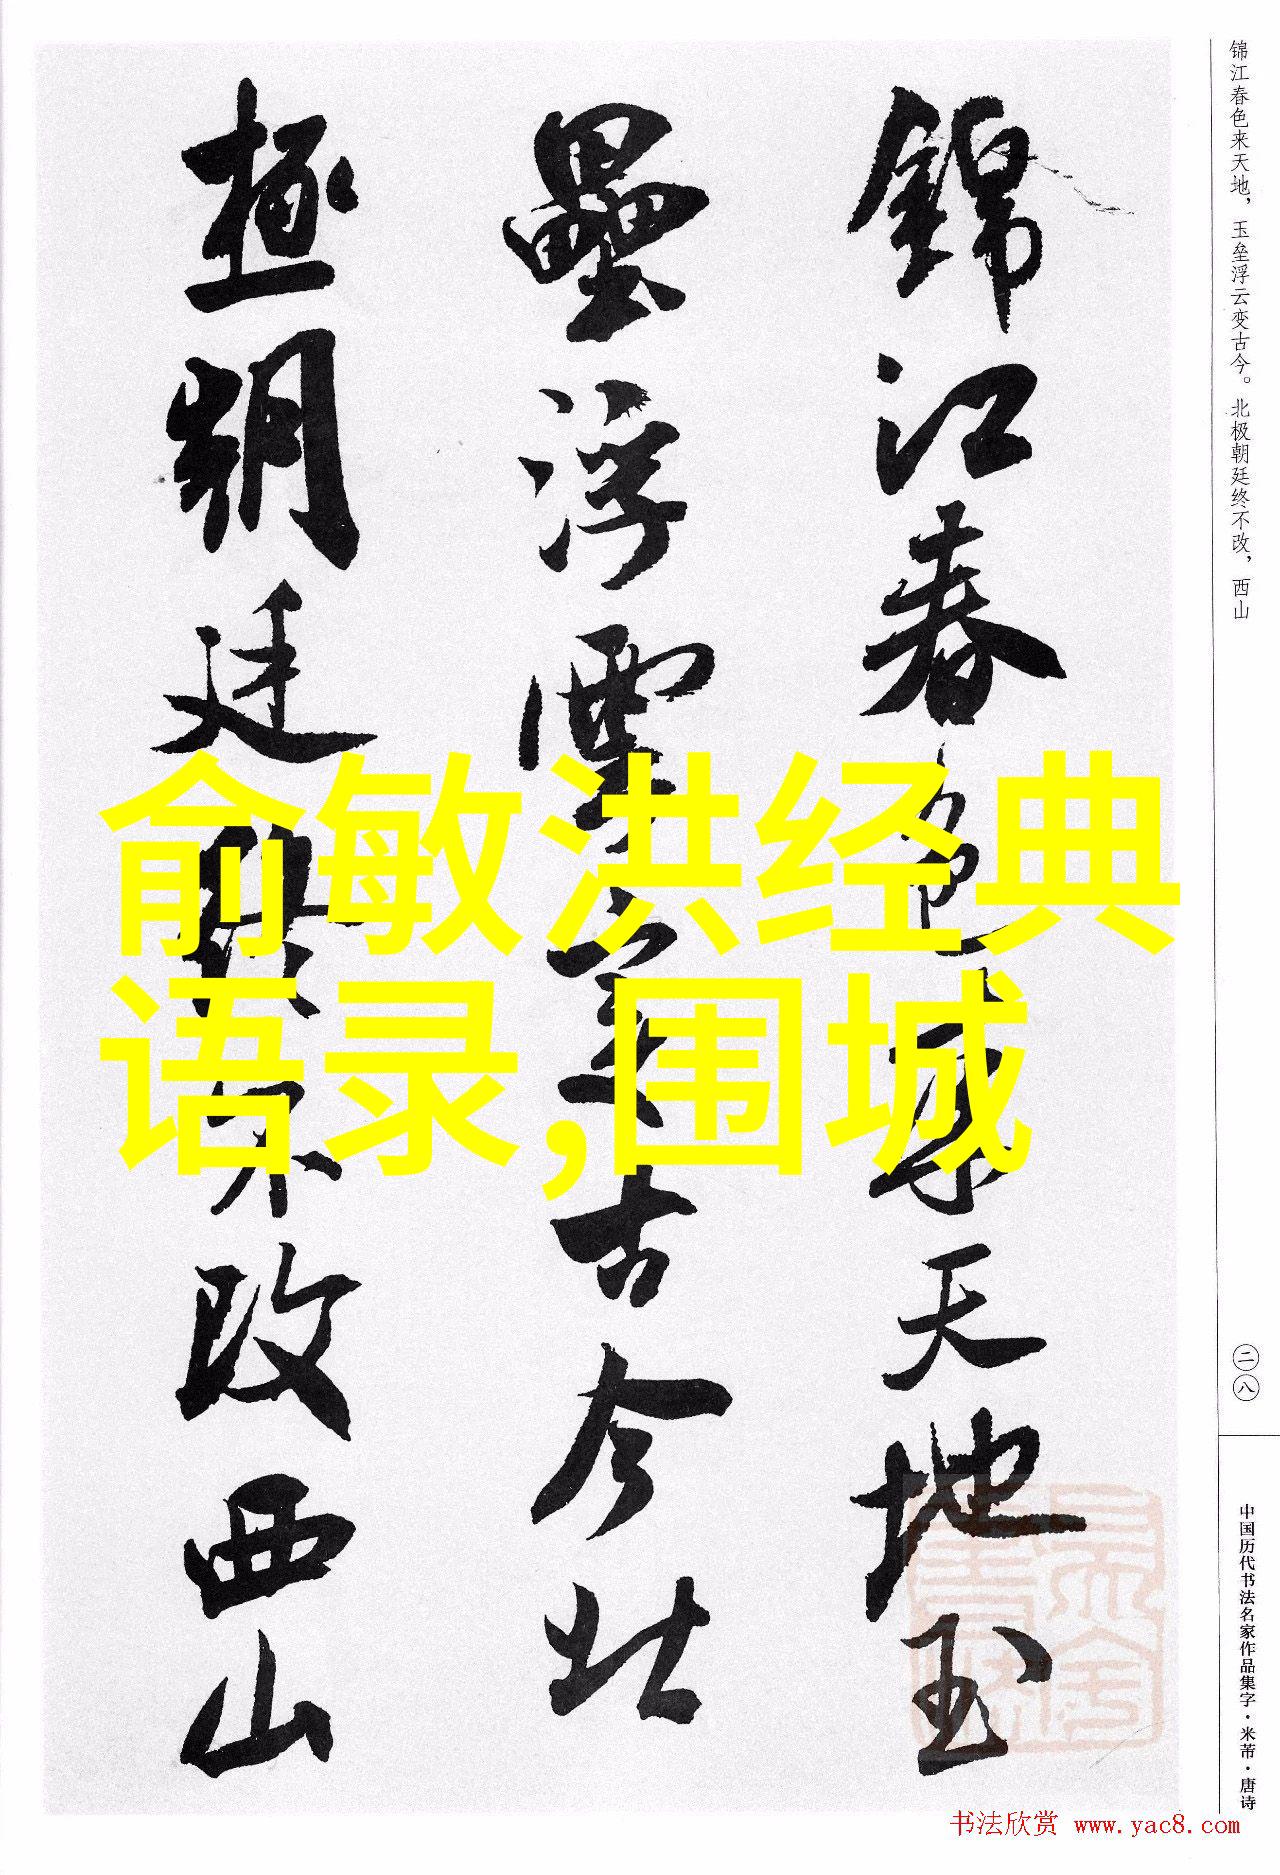 锦江春色来天地玉
壘浮雲变古今北
極朝廷終不改西山
锦江春色来天地，玉垒浮云变古今。北极朝廷终不改，西山
俞敏洪经典
语录,围城
二八
中国历代书法名家作品集字·米芾·唐诗
书法欣赏 www.yac8.com